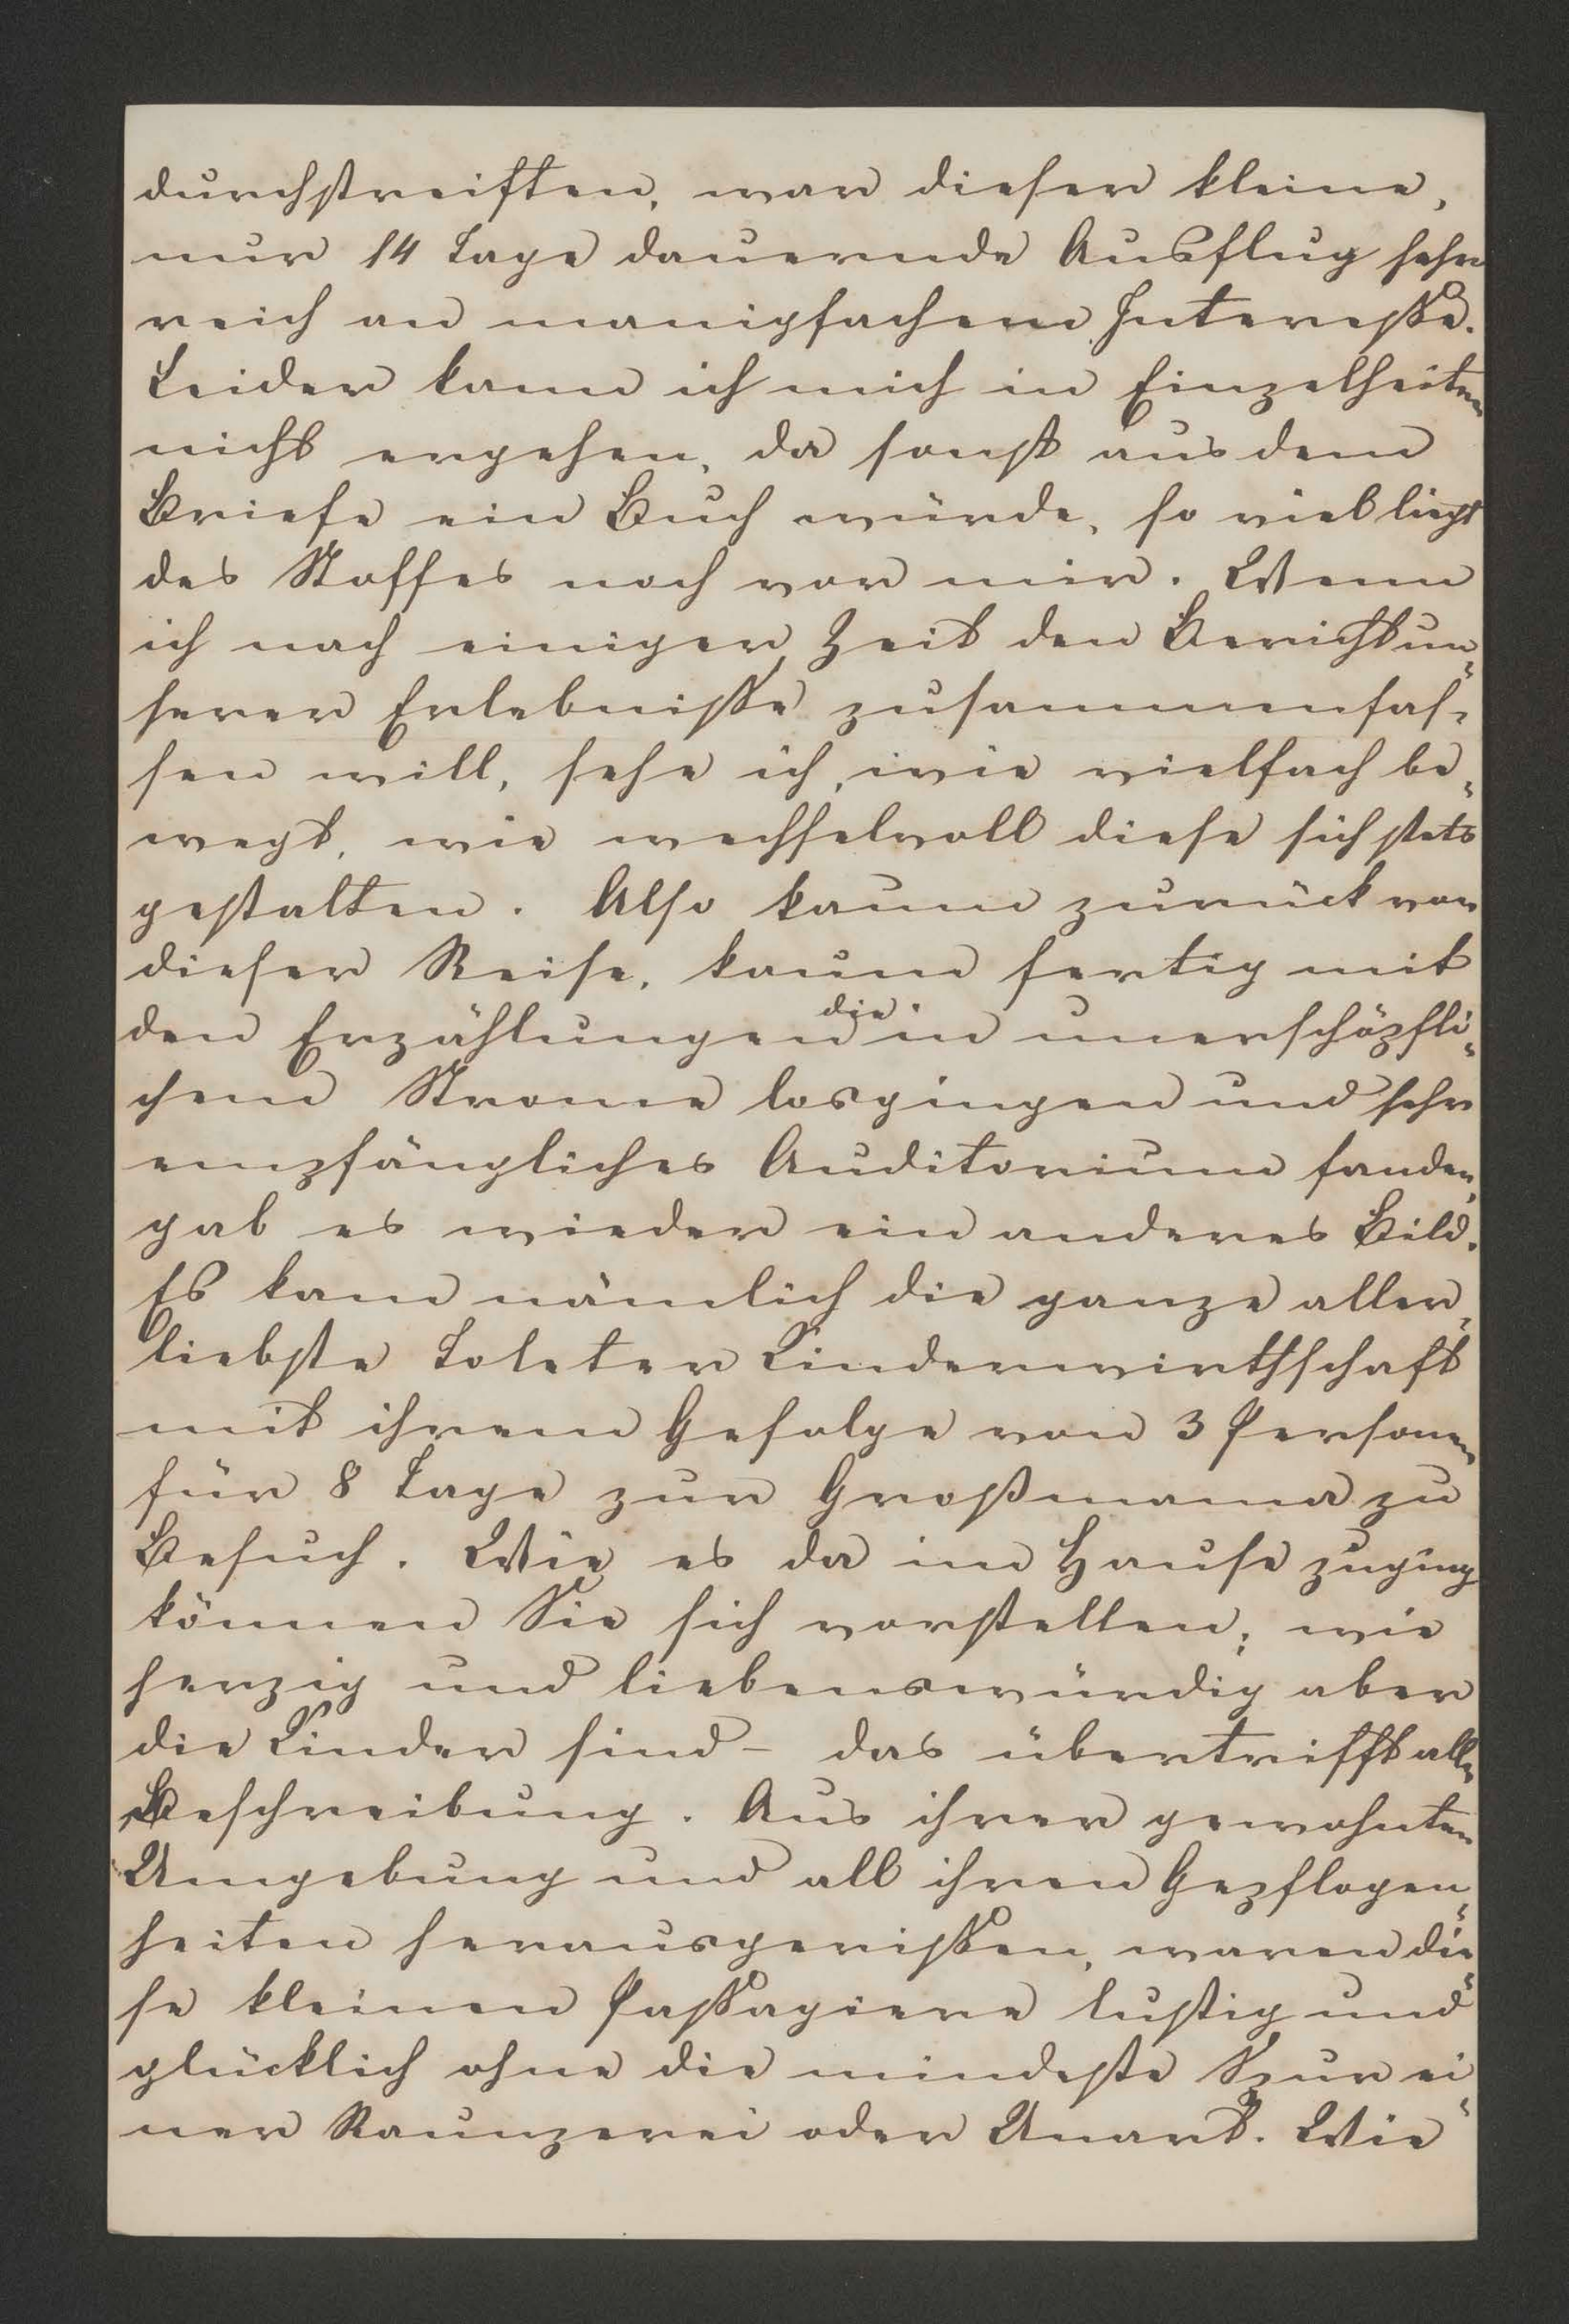 durchstreiften, war dieser kleine,
nur 14 Tage dauernde Ausflug sehr
reich an manigfachem Interesse.
Leider kann ich mich in Einzelheiten
nicht ergehen, da sonst aus dem
Briefe ein Buch würde, so viel liegt
des Stoffes noch vor mir. Wenn
ich nach einiger Zeit den Bericht un-
serer Erlebnisse zusammenfas-
sen will, sehe ich, wie vielfach be-
wegt, wie wechselvoll diese sich stets
gestalten. Also kaum zurück von
dieser Reise, kaum fertig mit
den Erzählungen die in unerschöpfli-
chem Strome losgingen und sehr
empfängliches Auditorium fanden,
gab es wieder ein anderes Bild.
Es kam nämlich die ganze aller-
liebste Toleter Kinderwirthschaft
mit ihrem Gefolge von 3 Personen
für 8 Tage zur Großmama zu
Besuch. Wie es da im Hause zuging
können Sie sich vorstellen; wie
herzig und liebenswürdig aber
die Kinder sind – das übertrifft alle
Beschreibung. Aus ihrer gewohnten
Umgebung und all ihren Gepflogen-
heiten herausgerissen, waren die-
se kleinen Passagiere lustig und
glücklich ohne die mindeste Spur ei-
ner Raunzerei oder Unart. Wie